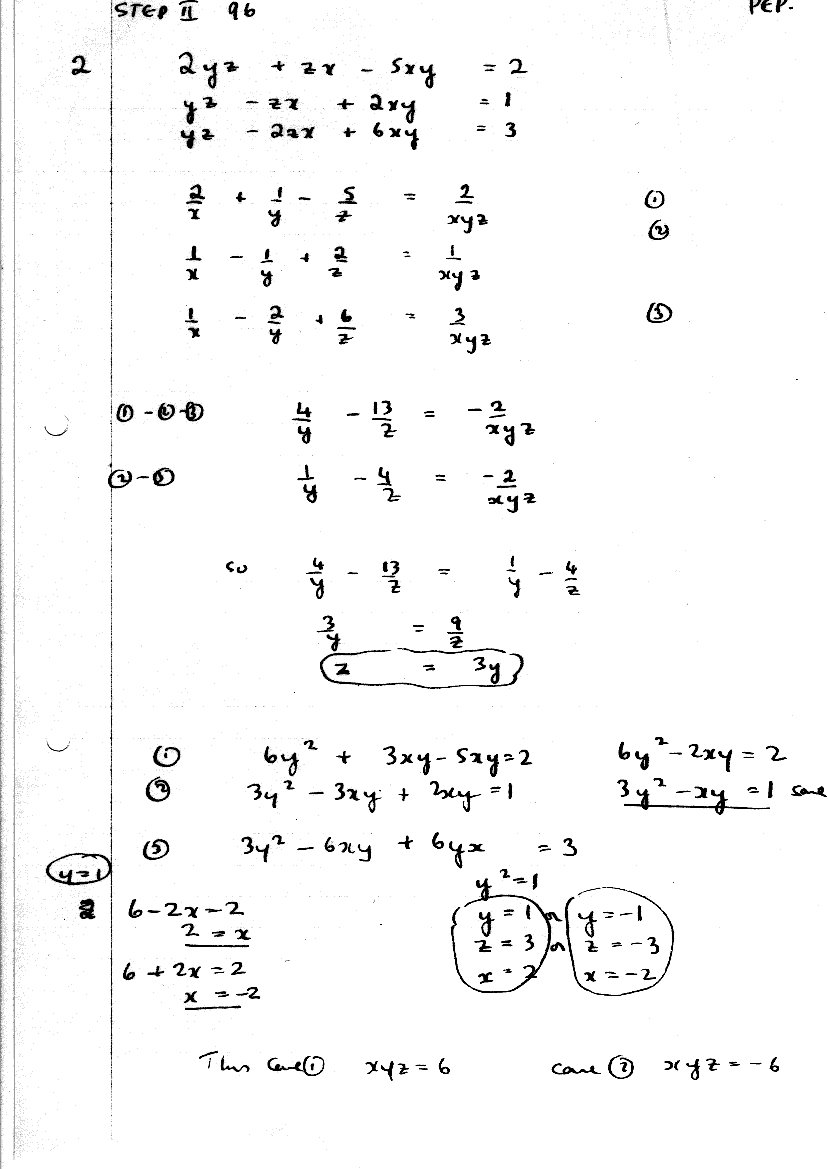 STEP II 96 PEP.
2 2yz + zx - 5xy = 2
yz - zx + 2xy = 1
yz - 2zx + 6xy = 3
2/x + 1/y - 5/z = 2/xyz ①
②
1/x - 1/y + 2/z = 1/xyz
1/x - 2/y + 6/z = 3/xyz ③
① - ② - ③ 4/y - 13/z = -2/xyz
② - ③ 1/y - 4/z = -2/xyz
so 4/y - 13/z = 1/y - 4/z
3/y = 9/z
z = 3y
① 6y² + 3xy - 5xy = 2 6y² - 2xy = 2
② 3y² - 3xy + 2xy = 1 3y² - xy = 1 same
③ 3y² - 6xy + 6yx = 3
y = 1 y² = 1
6 - 2x = 2 y = 1 or y = -1
2 = x z = 3 or z = -3
6 + 2x = 2 x = 2 x = -2
x = -2
Thus Case ① xyz = 6 case ② xyz = -6